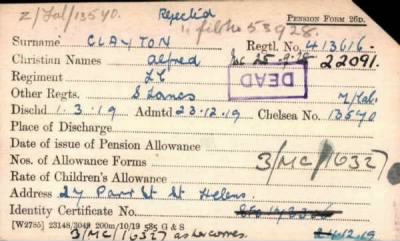 Z/Jal/13540. Rejected PENSION FORM 26D.
1, filhs 53928.
Surname CLAYTON Regtl. No. 413616
Christian Names Alfred 25-9-25 22091.
Regiment L.C. DEAD
Other Regts. S Lancs
Dischd 1.3.19 Admtd 23-12-19 Chelsea No. 13540
Place of Discharge
Date of issue of Pension Allowance
Nos. of Allowance Forms 3/MC/16327
Rate of Children's Allowance
Address 27 Parr St St Helens.
Identity Certificate No. 24.12.19
[W2785] 23148/3049 200m/10/19 585 G & S
3/MC/16327